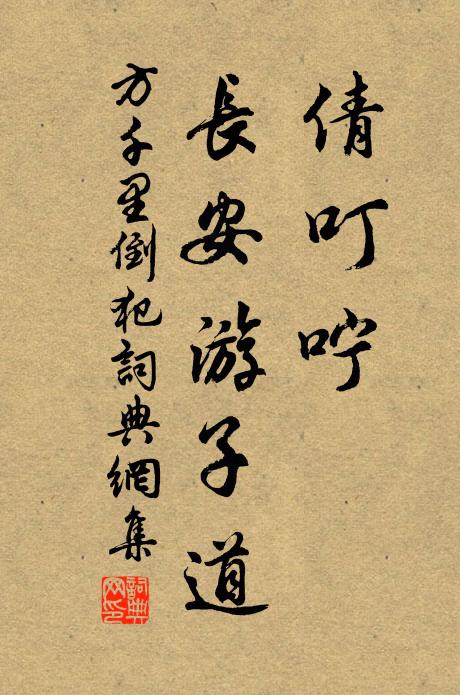 倩叮咛
長安游子道
方千里倒犯詞典網集
詞典网印